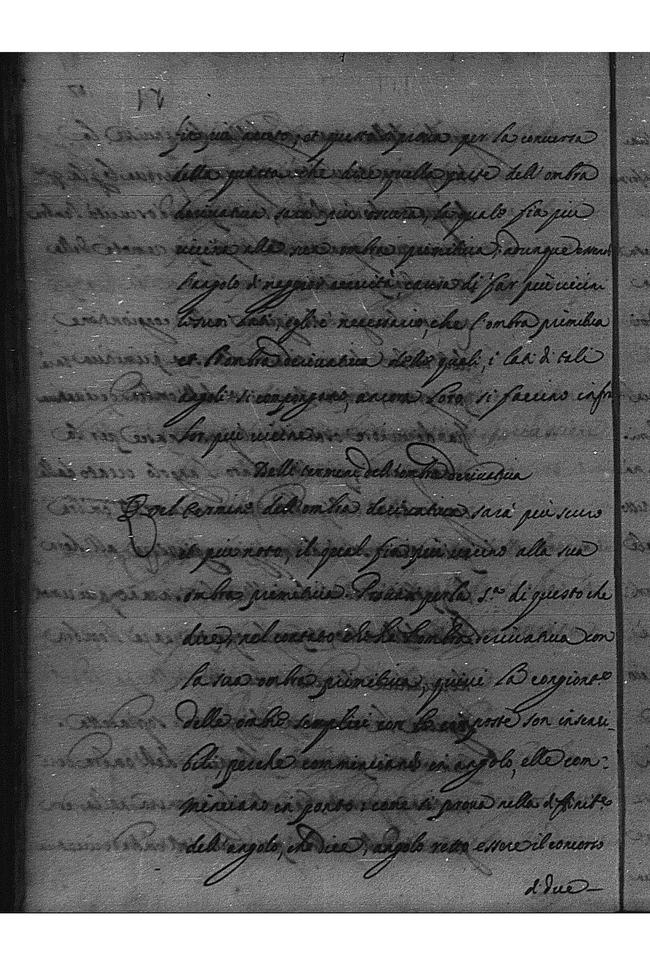 et questo si prova per la conversa
della quarta che dice, quella parte dell'ombra
derivativa sarà più oscura, la quale fia più
vicina alla sua ombra primitiva; adunque
l'angolo di maggior acuità, causa di far più vicini
li suoi lati, egli è necessario, che l'ombra primitiva
et l'ombra derivativa delle quali, i lati di tali
angoli si compongono, ancora loro, si faccino infra
lor, più vicine
Delli termini dell'ombra derivativa
Quel termine dell'ombra derivativa sarà più scuro
et più noto, il qual fia più vicino alla sua
ombra primitiva. Provasi per la 5.a di questo che
dice, nel contatto che ha l'ombra derivativa con
la sua ombra primitiva, quivi la congiont.e
delle ombre semplici con le composte son insensi-
bili, perche comminciando in angolo, elle com-
minciano in ponto: come si prova nella difinit.e
dell'angolo, che dice, angolo retto essere il concorso
di due